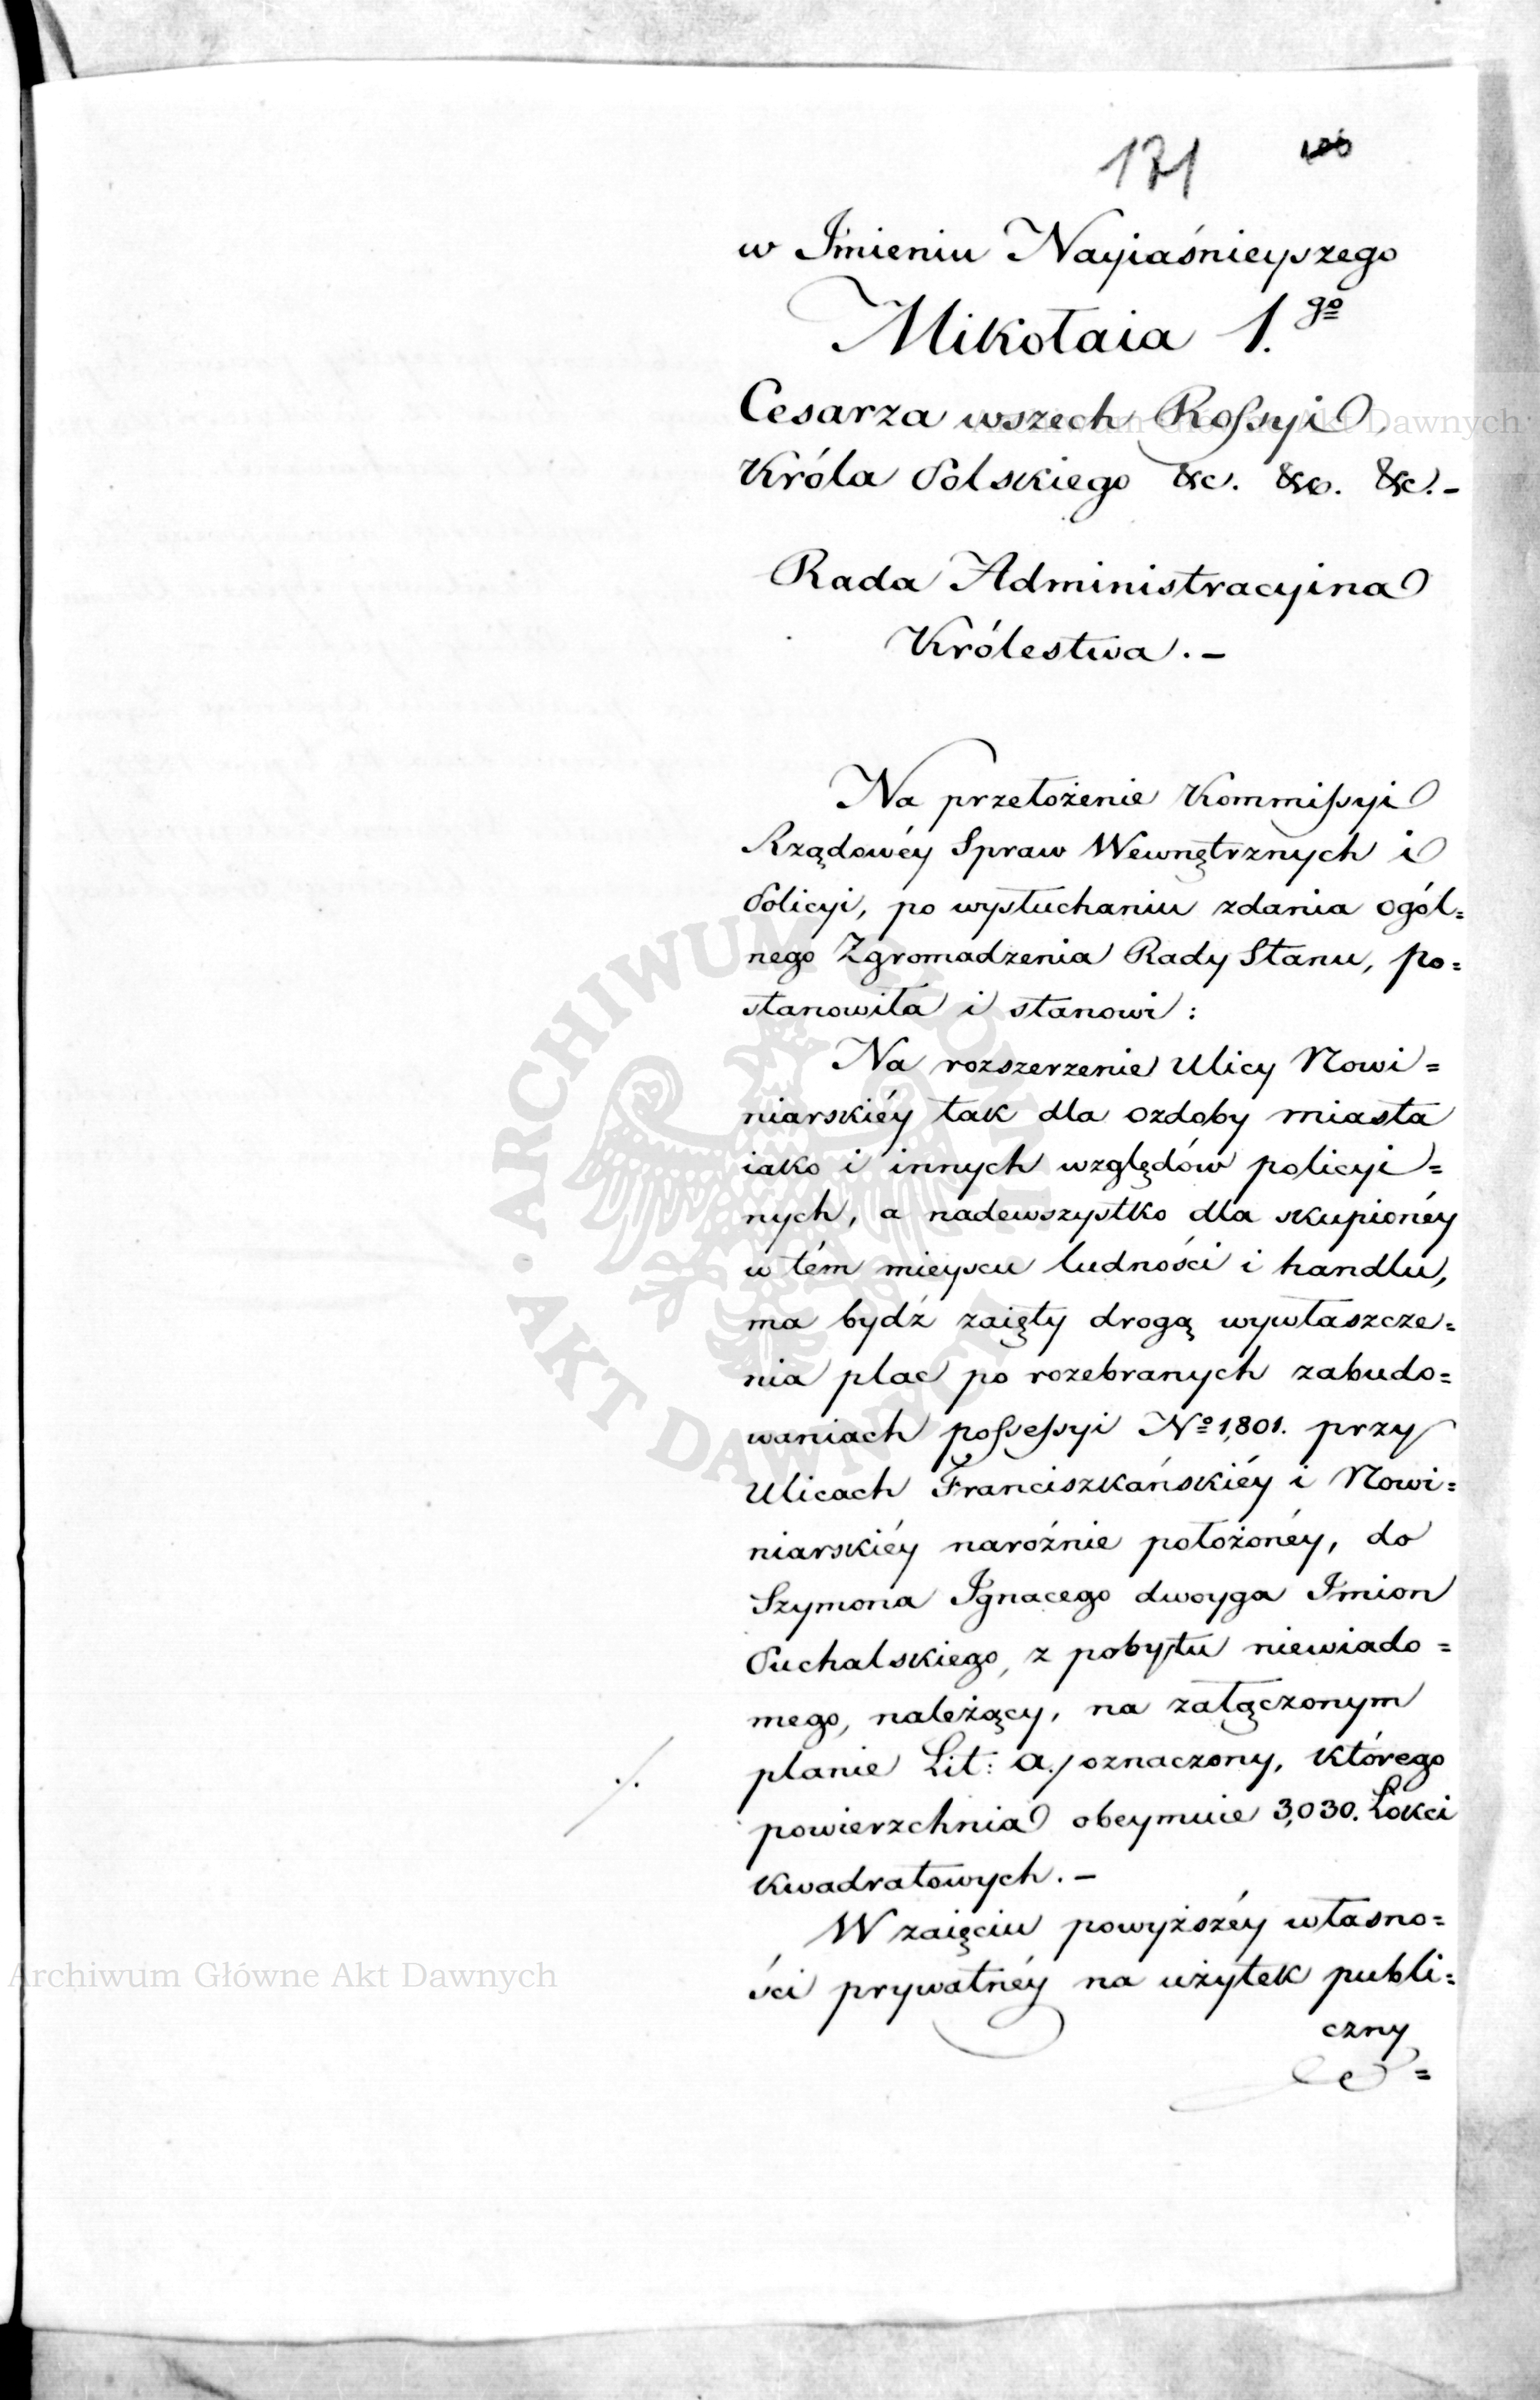 171
w Imieniu Nayiaśnieyszego
Mikołaia 1.go
Cesarza wszech Rossyi,
Króla Polskiego &c. &c. &c.-
Rada Administracyina
Królestwa.-
Na przełożenie Kommissyi
Rządowéy Spraw Wewnętrznych i
Policyi, po wysłuchaniu zdania ogól=
nego Zgromadzenia Rady Stanu, po=
stanowiła i stanowi:
Na rozszerzenie Ulicy Nowi=
niarskiéy tak dla ozdoby miasta
iako i innych względów policyi=
nych, a nadewszystko dla skupionéy
w tém mieyscu ludności i handlu,
ma bydź zaięty drogą wywłaszcze=
nia plac po rozebranych zabudo=
waniach possessyi No 1,801. przy
Ulicach Franciszkańskiéy i Nowi=
niarskiéy narożnie położonéy, do
Szymona Ignacego dwoyga Imion
Puchalskiego, z pobytu niewiado=
mego, należący, na załączonym
planie Lit: a./ oznaczony, którego
./.
powierzchnia obeymuie 3,030. Łokci
kwadratowych.-
W zaięciu powyższéy własno=
ści prywatnéy na użytek publi=
czny
ARCHIWUM GŁÓWNE AKT DAWNYCH
Archiwum Główne Akt Dawnych
Archiwum Główne Akt Dawnych